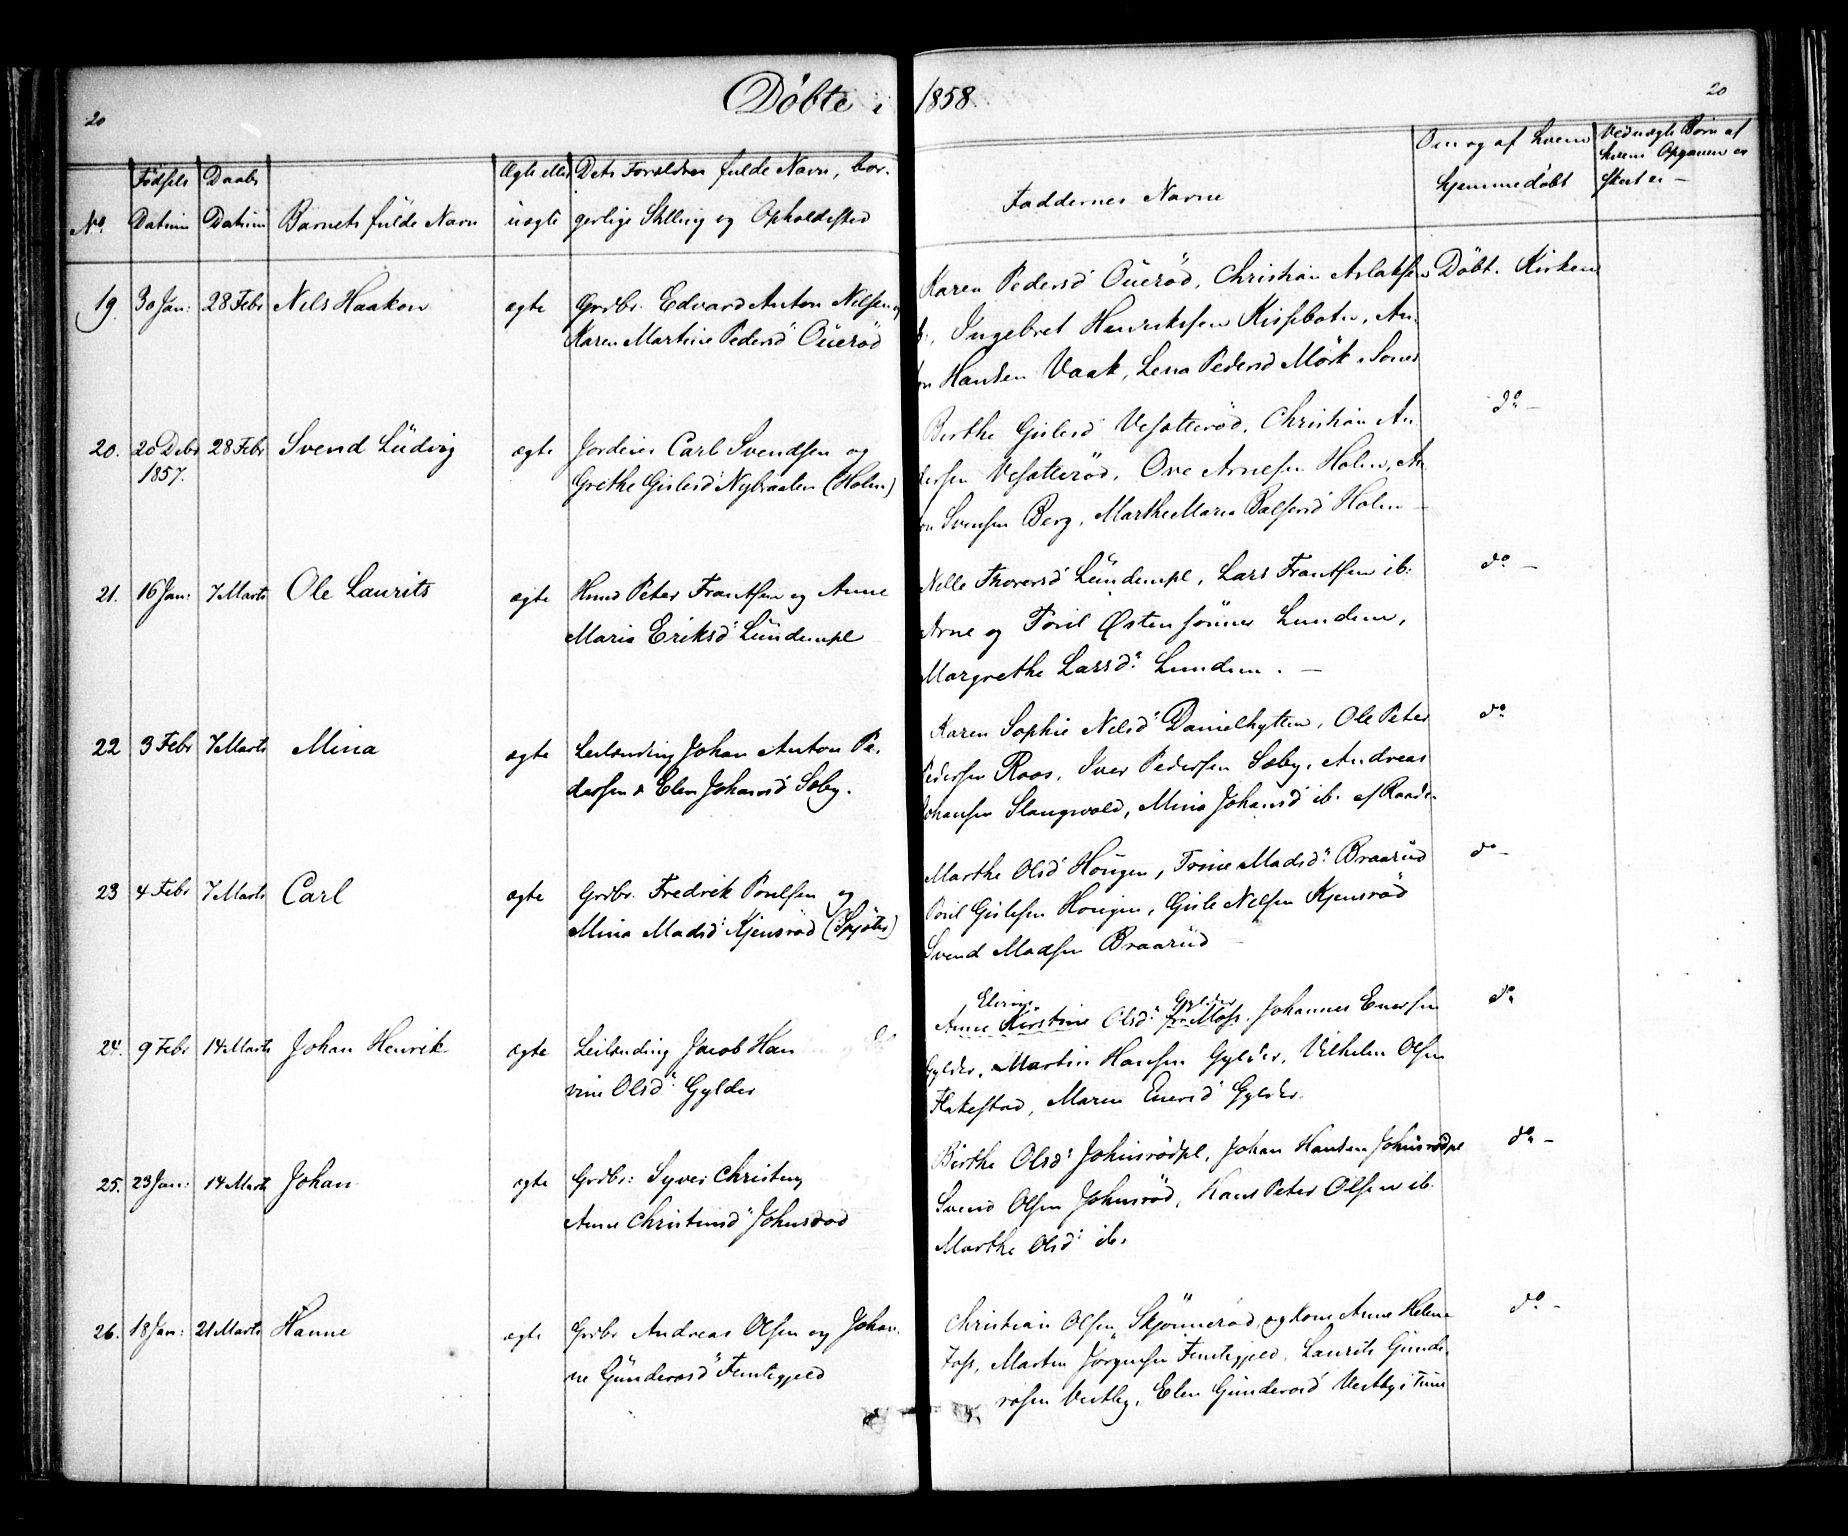 20 Döbte i 1858 20
No. Fødsels Datum Daabs Datum Barnets fulde Navn Ægte eller uægte Dets Forældres fulde Navn, bor-
gerlige Stilling og Opholdssted
Faddernes Navne
Om og af hvem
hjemmedöbt
Ved uægte Børn af
hvem Opgaven er
skeet
19. 30 Jan: 28 Febr Nels Haakon ægte Grdbr. Edvard Anton Nilsen og
Karen Martine Pedersd Ouerød
Karen Pedersd Ouerød, Christian Aslaksen Döbt. Kirken
Ingebret Henriksen Kispebotn, An-
ton Hansen Vaak, Lena Pedersd Mörk i Soner
20. 20 Debr 28 Febr Svend Ludvig ægte Jordeier Carl Svendsen og
1857. Grethe Gislesd Nybraaten (Holm)
Berthe Gislesd Vesatteröd, Christian An-
dersen Vesatteröd, Ove Arnesen Holm, An-
ton Svensen Berg, Marthe Maria Balsersd Holm
do
21. 16 Jan: 7 Marts Ole Laurits ægte Hmd Peter Frantsen og Anne
Maria Eriksd Lundenpl
Nelle Thorersd Lundenpl, Lars Frantsen ib:
Arne og Povel Østensönner Lunden,
Margrethe Larsd: Lunden. —
do
22 3 Febr 7 Marts Mina ægte Leilænding Johan Anton Pe-
dersen & Elen Johansd Sæby.
Karen Sophie Nelsd Danielhytten, Ole Peter
Pedersen Roos, Iver Pedersen Sæby, Andreas
Johansen Slangsvold, Mina Johansd ib. af Raade
do
23 4 Febr 7 Marts Carl ægte Grdbr. Fredrik Poulsen og
Mina Madsd: Kjensröd (Spjöter)
Marthe Olsd Hougen, Trine Madsd: Braarud
Povel Gislesen Hougen, Gisle Nelsen Kjensröd
Svend Madsen Braarud
do
24. 9 Febr 14 Marts Johan Henrik ægte Leilænding Jacob Han
vine Olsd: Gylder
Elevine Gylder
Anne Kirstine Olsd: fra Moss, Johannes Enersen
Gylder, Martin Hansen Gylder, Vilhelm Olsen
Flakestad, Maren Enersd Gylder.
do
25. 23 Jan: 14 Marts Johan ægte Grdbr: Syver Christens
Anne Christensd Johnsröd
Birthe Olsd: Johnsrödpl, Johan Hansen Johnsrödpl
Svend Olsen Johnsröd, Hans Peter Olsen ib.
Marthe Olsd ib.
do
26. 18 Jan: 21 Marts Hanne ægte Grdbr Andreas Olsen og Johan-
ne Gundersd Femtegjeld
Christian Olsen Skjönneröd, og kone Anne Helene
Foss, Martin Jörgensen Femtegjeld, Laurits Gunde-
rosen Vestby, Elen Gunderosd Vestby i Tune
do